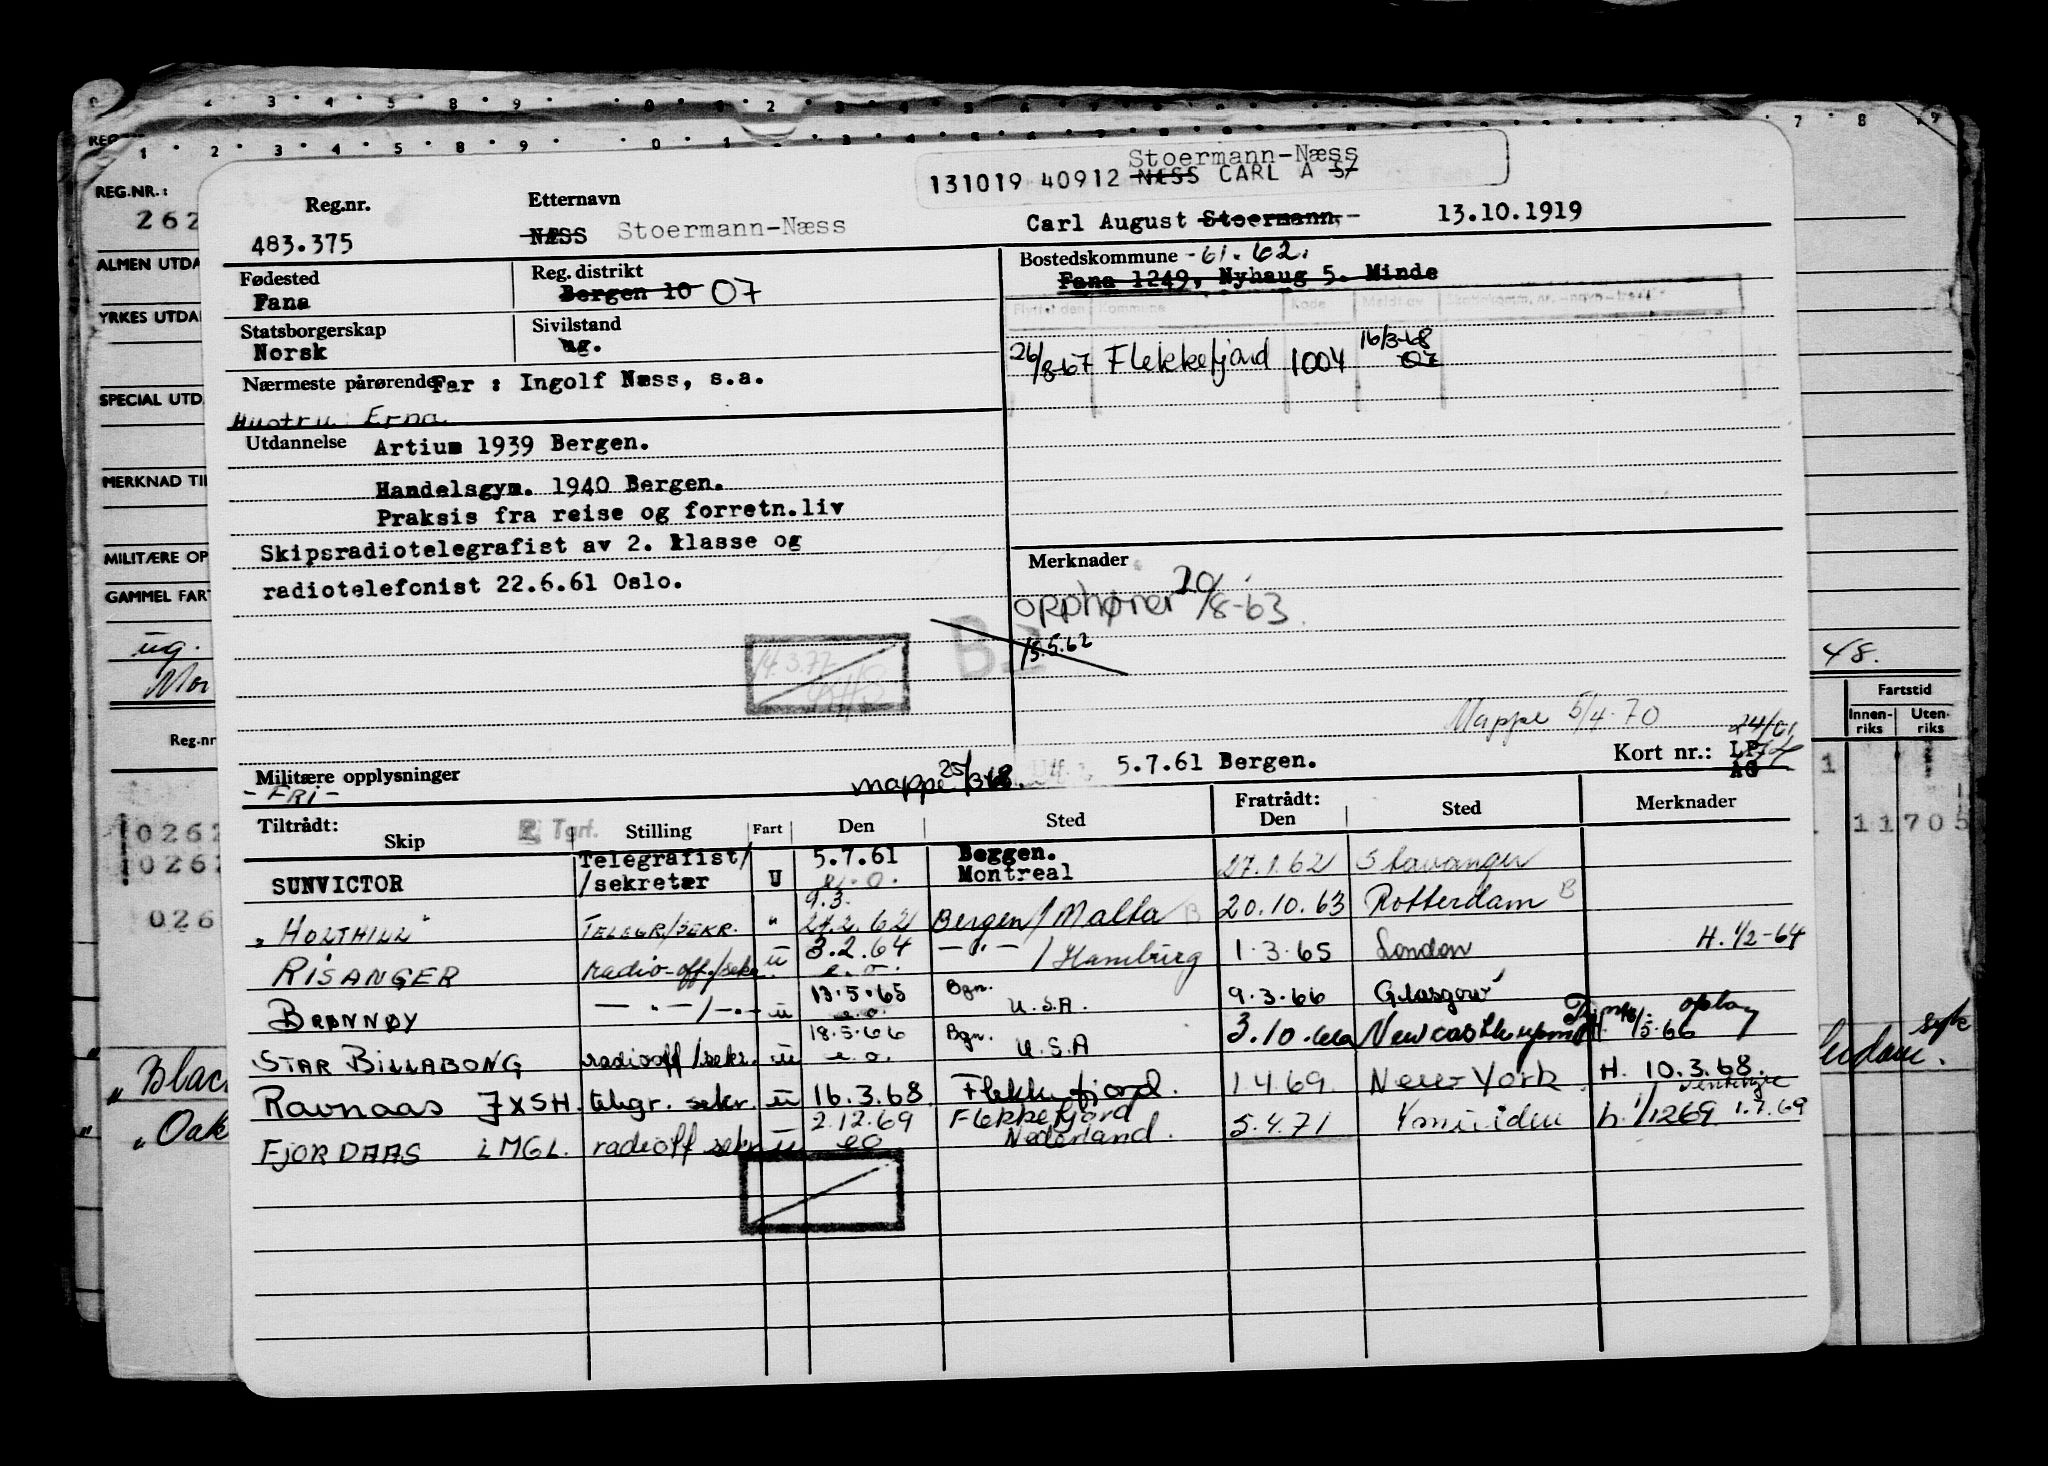 Stoermann-Næss
131019 40912 NÆSS CARL A 57
Reg.nr. Etternavn
483.375 NÆSS Stoermann-Næss Carl August Stoermann,- 13.10.1919
Fødested Reg.distrikt Bostedskommune -61.62.
Fana Bergen 10 07 Fana 1249, Nyhaug 5. Minde
Statsborgerskap Sivilstand
Norsk ug.
26/8-67 Flekkefjord 1004 16/3-68 07
Nærmeste pårørende Far : Ingolf Næss, s.a.
Hustru: Erna
Utdannelse Artium 1939 Bergen.
Handelsgym. 1940 Bergen.
Praksis fra reise og forretn.liv
Skipsradiotelegrafist av 2. klasse og
radiotelefonist 22.6.61 Oslo.
Merknader
opphører 20/8-63
15.5.62
B2
14.3.77
Mappe 5/4-70
Militære opplysninger mappe 25/3-68. 5.7.61 Bergen. Kort nr.: LP
24/61
AG
- FRI -
Tiltrådt: Skip 2. Tgrf. Stilling Fart Den Sted Fratrådt: Den Sted Merknader
SUNVICTOR Telegrafist/ /sekretær U 5.7.61 e.o. Bergen. Montreal 27.1.62 Stavanger
" HOLTHILL " TELEGR/SEKR. " 9.3. 27.2.62 Bergen / Malta B 20.10.63 Rotterdam B
RISANGER radio-off./sekr. u 3.2.64 e.o. — " — / Hamburg 1.3.65 London H. 1/2-64
BRØNNØY — . — / — . — u 13.5.65 e.o. Bgn. U.S.A. 9.3.66 Glasgow
STAR BILLABONG radioff/sekr. u 18.5.66 e.o. Bgn. U.S.A 3.10.66 Newcastle upon T. /5-66
Ravnaas JXSH. telegr. sekr. u 16.3.68 Flekkefjord. 1.4.69 New York H. 10.3.68.
FJORDAAS LMGL. radioff sekr u 2.12.69 eo Flekkefjord Nederland. 5.4.71 Ymuiden h. 1/1269 1.7.69
REG.NR.:
262
ALMEN UTDA
YRKES UTDA
SPECIAL UTD
MERKNAD TIL
MILITÆRE OP
GAMMEL FART
ug.
48.
Reg.nr
Fartstid
Innen-riks Uten-riks
0262
0262
026
1
11705
" Blac
" Oak